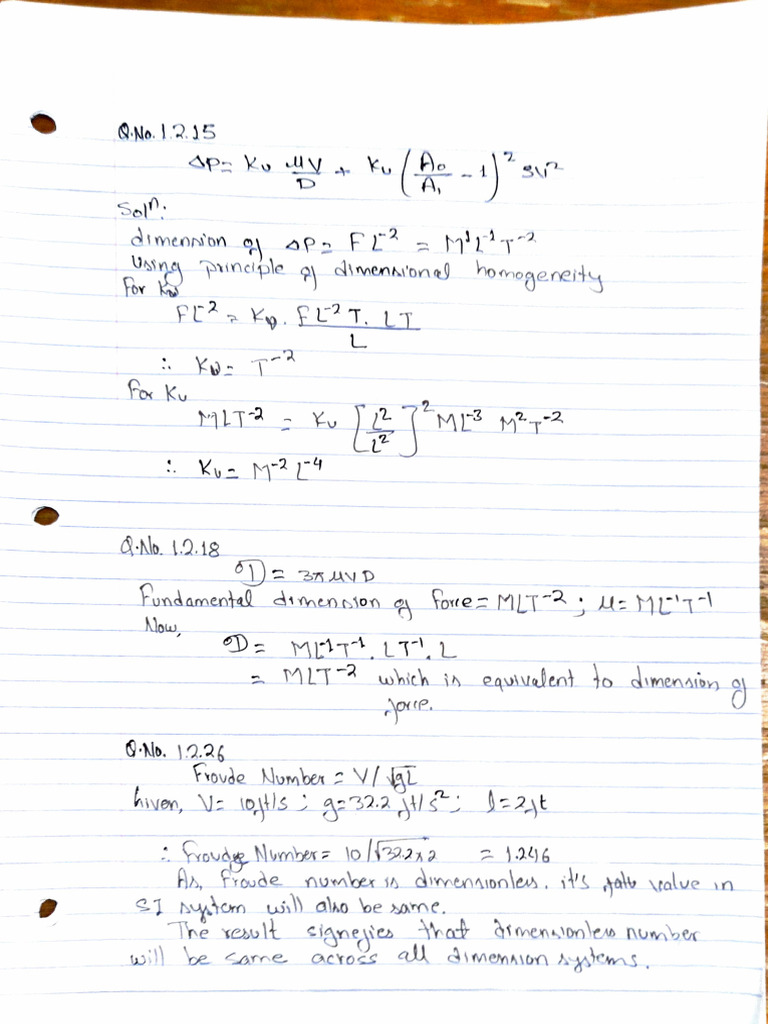 Q.No. 1.2.15
ΔP = Kv μV/D + Ku (A₀/A₁ - 1)² ρV²
Solⁿ:
dimension of ΔP = FL⁻² = M¹L⁻¹T⁻²
Using principle of dimensional homogeneity
For Kv
FL⁻² = Kv. FL⁻²T. LT / L
∴ Kv = T⁻²
For Ku
MLT⁻² = Ku [L²/L²]² ML⁻³ M²T⁻²
∴ Ku = M⁻² L⁻⁴
Q.No. 1.2.18
D = 3πμVD
Fundamental dimension of force = MLT⁻² ; μ = ML⁻¹T⁻¹
Now,
D = ML⁻¹T⁻¹. LT⁻¹. L
= MLT⁻² which is equivalent to dimension of
force.
Q.No. 1.2.26
Froude Number = V/√gL
Given, V = 10ft/s ; g = 32.2 ft/s² ; l = 2ft
∴ Froude Number = 10/√32.2x2 = 1.246
As, Froude number is dimensionless. it's value in
SI system will also be same.
The result signefies that dimensionless number
will be same across all dimension systems.